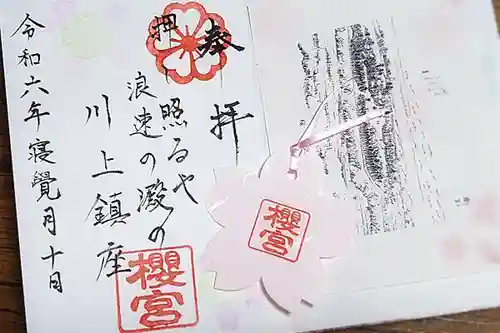 奉拝
押照るや
浪速の澱の
川上鎮座
令和六年寝覺月十日
櫻宮
櫻宮